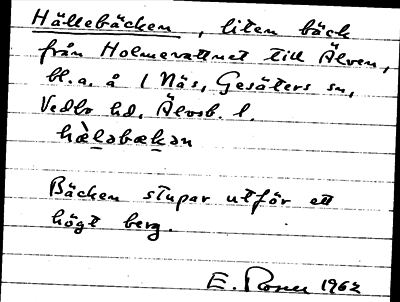 Hällebäcken, liten bäck
från Holmevattnet till Älven,
bl.a. å 1 Näs, Gesäters sn,
Vedbo hd, Älvsb. l.
hæ̀ləbækən
Bäcken stupar utför ett
högt berg.
E. 1962